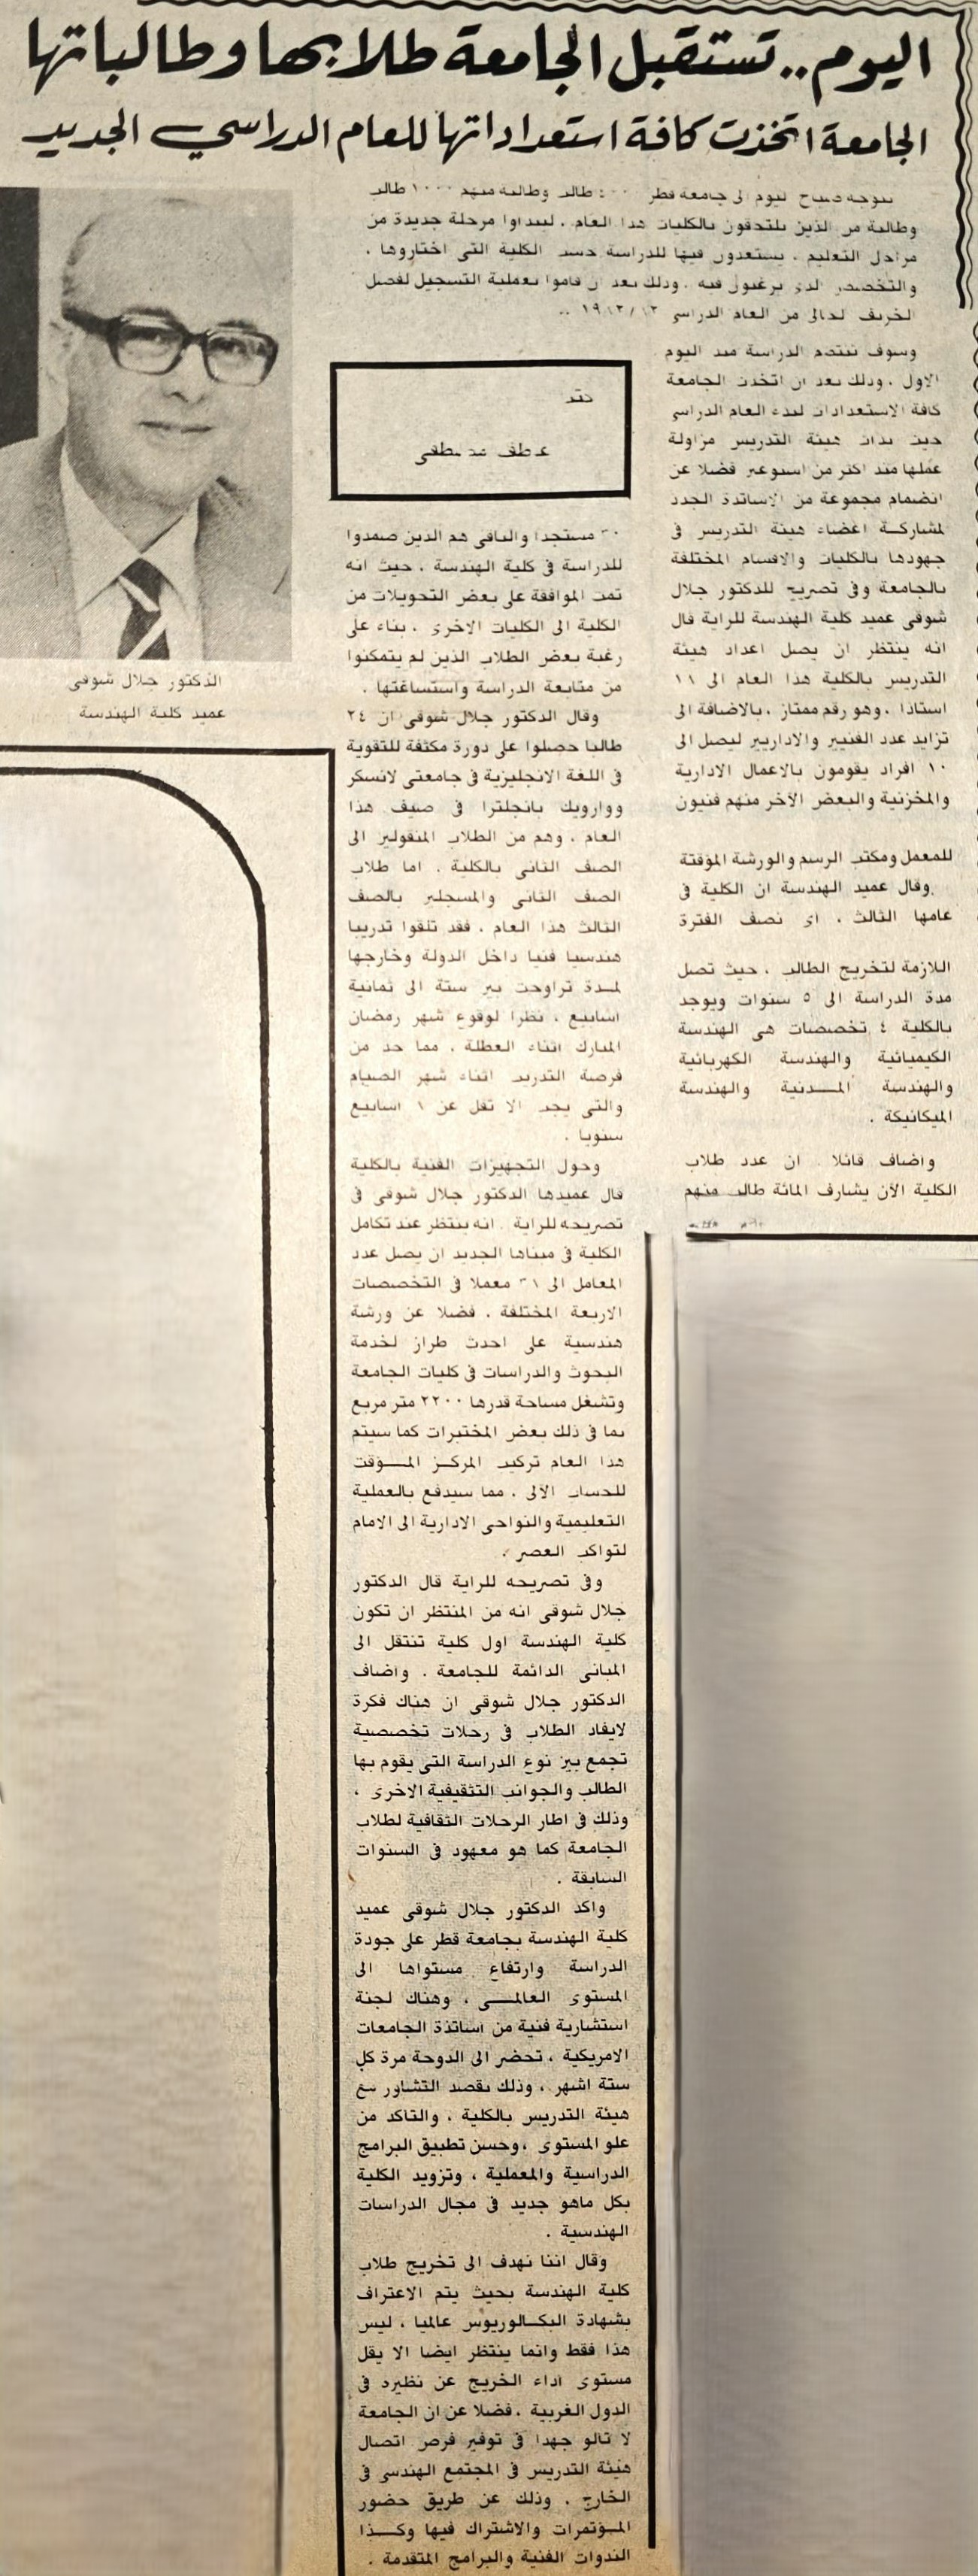 اليوم.. تستقبل الجامعة طلابها وطالباتها
الجامعة اتخذت كافة استعداداتها للعام الدراسي الجديد
يتوجه صباح اليوم الى جامعة قطر طالب وطالبة منهم ١٠٠٠ طالب
وطالبة من الذين يلتحقون بالكليات هذا العام . ليبداوا مرحلة جديدة من
مراحل التعليم . يستعدون فيها للدراسة حسب الكلية التى اختاروها .
والتخصص الذى يرغبون فيه . وذلك بعد ان قاموا بعملية التسجيل لفصل
الخريف الحالى من العام الدراسى
وسوف تنتظم الدراسة منذ اليوم
الاول . وذلك بعد ان اتخذت الجامعة
كافة الاستعدادات لبدء العام الدراسى
حيث بدات هيئة التدريس مزاولة
عملها منذ اكثر من اسبوعين فضلا عن
انضمام مجموعة من الاساتذة الجدد
لمشاركة اعضاء هيئة التدريس فى
جهودها بالكليات والاقسام المختلفة
بالجامعة وفى تصريح للدكتور جلال
شوقى عميد كلية الهندسة للراية قال
انه ينتظر ان يصل اعداد هيئة
التدريس بالكلية هذا العام الى
استاذا . وهو رقم ممتاز . بالاضافة الى
تزايد عدد الفنيين والاداريين ليصل الى
١٠ افراد يقومون بالاعمال الادارية
والمخزنية والبعض الآخر منهم فنيون
للمعمل ومكتب الرسم والورشة المؤقتة
.وقال عميد الهندسة ان الكلية فى
عامها الثالث . اى نصف الفترة
اللازمة لتخريج الطالب . حيث تصل
مدة الدراسة الى ٥ سنوات ويوجد
بالكلية ٤ تخصصات هى الهندسة
الكيميائية والهندسة الكهربائية
والهندسة المــدنية والهندسة
الميكانيكة .
واضاف قائلا . ان عدد طلاب
الكلية الآن يشارف المائة طالب منهم
كتب
عاطف مصطفى
مستجدا والباقى هم الذين صمدوا
للدراسة فى كلية الهندسة . حيث انه
تمت الموافقة على بعض التحويلات من
الكلية الى الكليات الاخرى . بناء على
رغبة بعض الطلاب الذين لم يتمكنوا
من متابعة الدراسة واستساغتها .
وقال الدكتور جلال شوقى ان ٢٤
طالبا حصلوا على دورة مكثفة للتقوية
فى اللغة الانجليزية فى جامعتى لانسكر
ووارويك بانجلترا فى صيف هذا
العام . وهم من الطلاب المنقولين الى
الصف الثانى بالكلية . اما طلاب
الصف الثانى والمسجلين بالصف
الثالث هذا العام . فقد تلقوا تدريبا
هندسيا فنيا داخل الدولة وخارجها
لمــدة تراوحت بين ستة الى ثمانية
اسابيع . نظرا لوقوع شهر رمضان
المبارك اثناء العطلة . مما حد من
فرصة التدريب اثناء شهر الصيام
والتى يجب الا تقل عن اسابيع
سنويا .
وحول التجهيزات الفنية بالكلية
قال عميدها الدكتور جلال شوقى فى
تصريحه للراية . انه ينتظر عند تكامل
الكلية فى مبناها الجديد ان يصل عدد
المعامل الى معملا فى التخصصات
الاربعة المختلفة . فضلا عن ورشة
هندسية على احدث طراز لخدمة
البحوث والدراسات فى كليات الجامعة
وتشغل مساحة قدرها ٢٢٠٠ متر مربع
بما فى ذلك بعض المختبرات كما سيتم
هذا العام تركيب المركــز المــؤقت
للحساب الآلى . مما سيدفع بالعملية
التعليمية والنواحى الادارية الى الامام
لتواكب العصر .
وفى تصريحه للراية قال الدكتور
جلال شوقى انه من المنتظر ان تكون
كلية الهندسة اول كلية تنتقل الى
المبانى الدائمة للجامعة . واضاف
الدكتور جلال شوقى ان هناك فكرة
لايفاد الطلاب فى رحلات تخصصية
تجمع بين نوع الدراسة التى يقوم بها
الطالب والجوانب التثقيفية الاخرى ،
وذلك فى اطار الرحلات الثقافية لطلاب
الجامعة كما هو معهود فى السنوات
السابقة .
واكد الدكتور جلال شوقى عميد
كلية الهندسة بجامعة قطر على جودة
الدراسة وارتفاع مستواها الى
المستوى العالمــى ، وهناك لجنة
استشارية فنية من اساتذة الجامعات
الامريكية ، تحضر الى الدوحة مرة كل
ستة اشهر ، وذلك بقصد التشاور مع
هيئة التدريس بالكلية ، والتاكد من
علو المستوى ، وحسن تطبيق البرامج
الدراسية والمعملية ، وتزويد الكلية
بكل ماهو جديد فى مجال الدراسات
الهندسية .
وقال اننا نهدف الى تخريج طلاب
كلية الهندسة بحيث يتم الاعتراف
بشهادة البكــالوريوس عالميا ، ليس
هذا فقط وانما ينتظر ايضا الا يقل
مستوى اداء الخريج عن نظيره فى
الدول الغربية . فضلا عن ان الجامعة
لا تالو جهدا فى توفير فرص اتصال
هيئة التدريس فى المجتمع الهندسى فى
الخارج . وذلك عن طريق حضور
المــؤتمرات والاشتراك فيها وكــذا
الندوات الفنية والبرامج المتقدمة .
الدكتور جلال شوقى
عميد كلية الهندسة